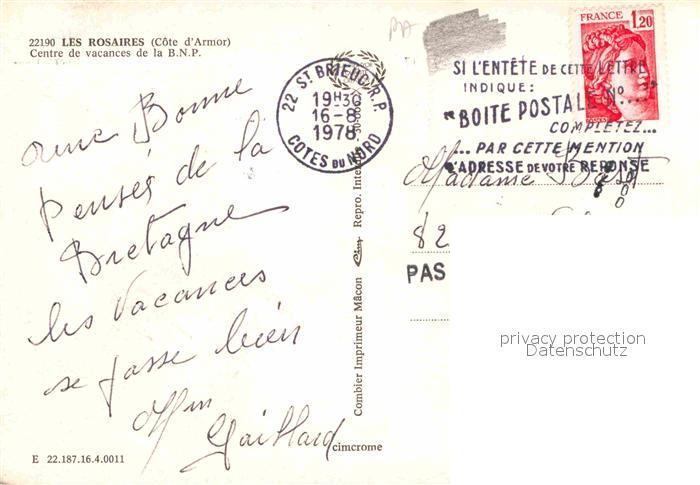 22190 LES ROSAIRES (Côte d'Armor)
Centre de vacances de la B.N.P.
une Bonne
Pensés de la
Bretagne
les Vacances
se passe bien
Mm
Gaillard
E 22.187.16.4.0011
cimcrome
Combier Imprimeur Mâcon Cim Repro. Inter
22 ST BRIEUC R.P.
19H30
16-8
1978
COTES DU NORD
FRANCE 1,20
SI L'ENTÊTE DE CETTE LETTRE
INDIQUE:
"BOITE POSTALE N°...."
COMPLETEZ...
... PAR CETTE MENTION
L'ADRESSE DE VOTRE REPONSE
Madame
82
PAS
privacy protection
Datenschutz